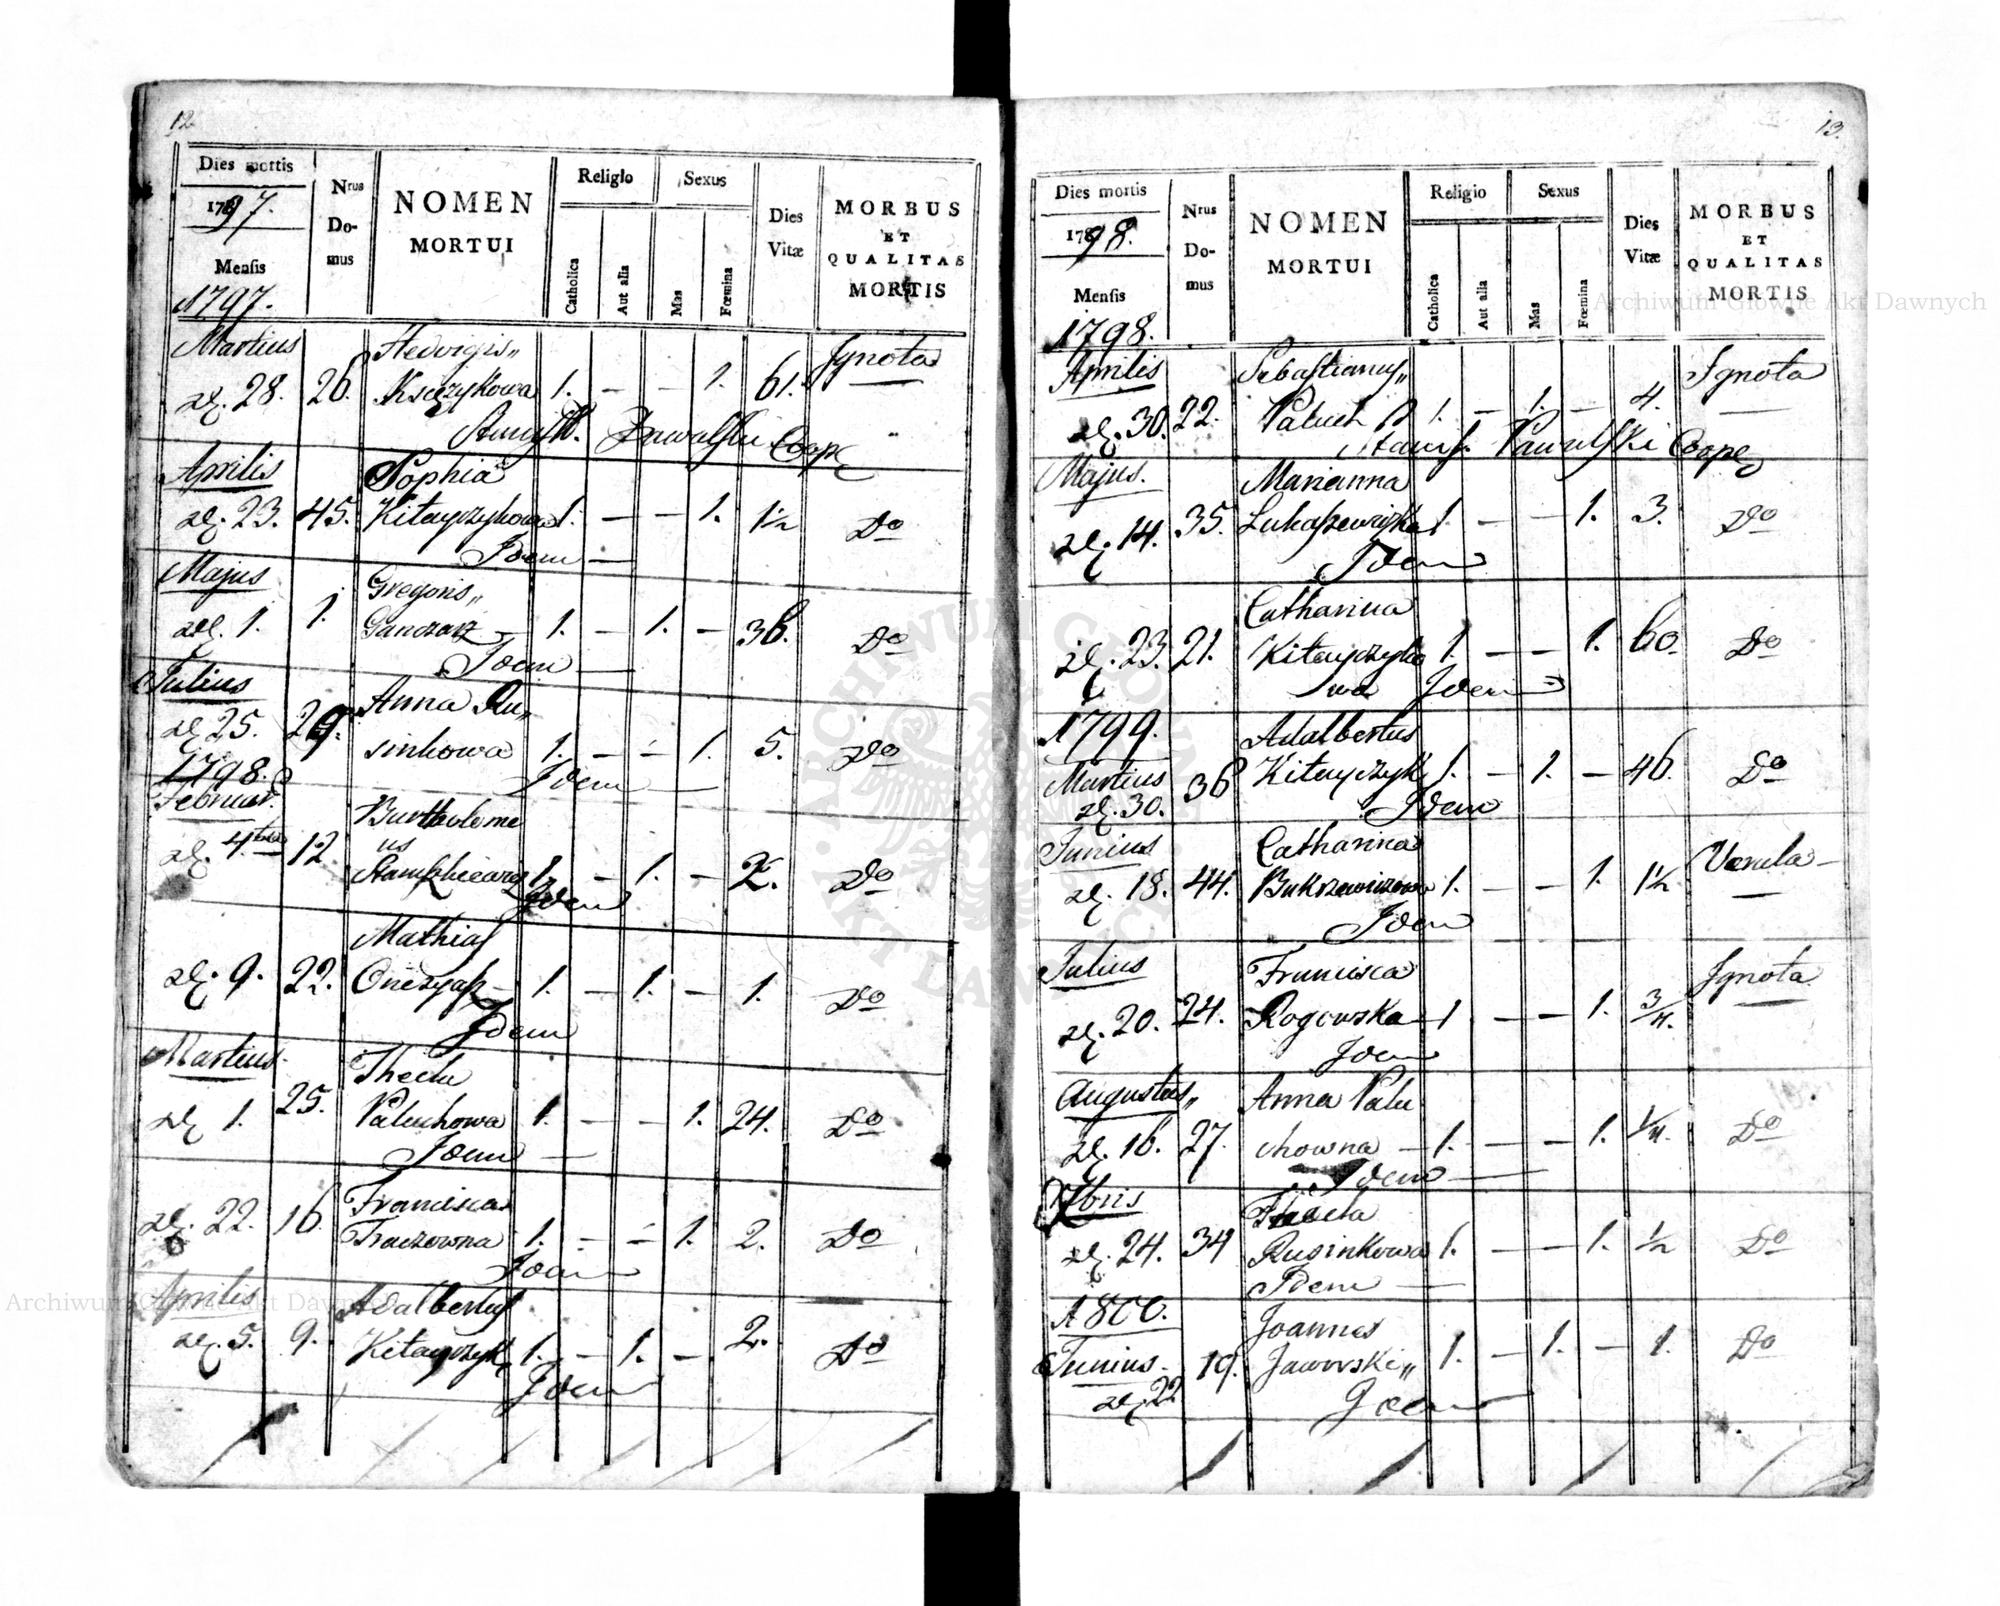 12.
Dies mortis
1797.
Mensis
1797.
Nrus
Do-
mus
NOMEN
MORTUI
Religio
Catholica
Aut alia
Sexus
Mas
Fœmina
Dies
Vitæ
MORBUS
ET
QUALITAS
MORTIS
Martius Hedvigis„ Ignota
28. 26. 1. — — 1. 61.
Coopr
Aprilis Sophia
23. 45. Kitayczykowa 1. — — 1. 1½ Do
Idem —
Majus Gregoris„
1. 1. Ganczarz — 1. — 1. — 36. Do
Idem —
Julius Anna Ru„
25. 29. sinkowa 1. — — 1. 5. Do
1798. Idem —
Februar. Bartholome
4ta 12 us
1. — 1. — 2. Do
Idem
Mathias
9. 22. 1. — 1. — 1. Do
Idem
Martius Thecla
1. 25. Paluchowa 1. — — 1. 24. Do
Idem —
Francisca
22. 16. Traczowna 1. — — 1. 2. Do
Idem
Aprilis Adalbertus
5. 9. Kitayczyk 1. — 1. — 2. Do
Idem
13.
Dies mortis
1798.
Mensis
1798.
Nrus
Do-
mus
NOMEN
MORTUI
Religio
Catholica
Aut alia
Sexus
Mas
Fœmina
Dies
Vitæ
MORBUS
ET
QUALITAS
MORTIS
Aprilis Sebastianus„ Ignota
30. 22. Paluch 1. — 1. — 4.
Coopr
Majus. Marianna
14. 35. 1. — — 1. 3. Do
Idem
Catharina
23. 21. Kitayczyko 1. — — 1. 60. Do
wa Idem
1799. Adalbertus
Martius 36 Kitayczyk 1. — 1. — 46. Do
30. Idem
Junius Catharina Variola —
18. 44. 1. — — 1. 1½
Idem
Julius Francisca Ignota
20. 24. Rogowska 1 — — 1. 3/4.
Idem
Augustus„ Anna Palu
16. 27. chowna — 1. — — 1. 1/4. Do
Idem —
Thecla
24. 34 Rusinkowa 1. — — 1. ½ Do
Idem —
1800. Joannes
Junius. 19. Jaworski„ 1. — 1. — 1. Do
22 Idem
Archiwum Główne Akt Dawnych
Archiwum Główne Akt Dawnych
ARCHIWUM GŁÓWNE AKT DAWNYCH